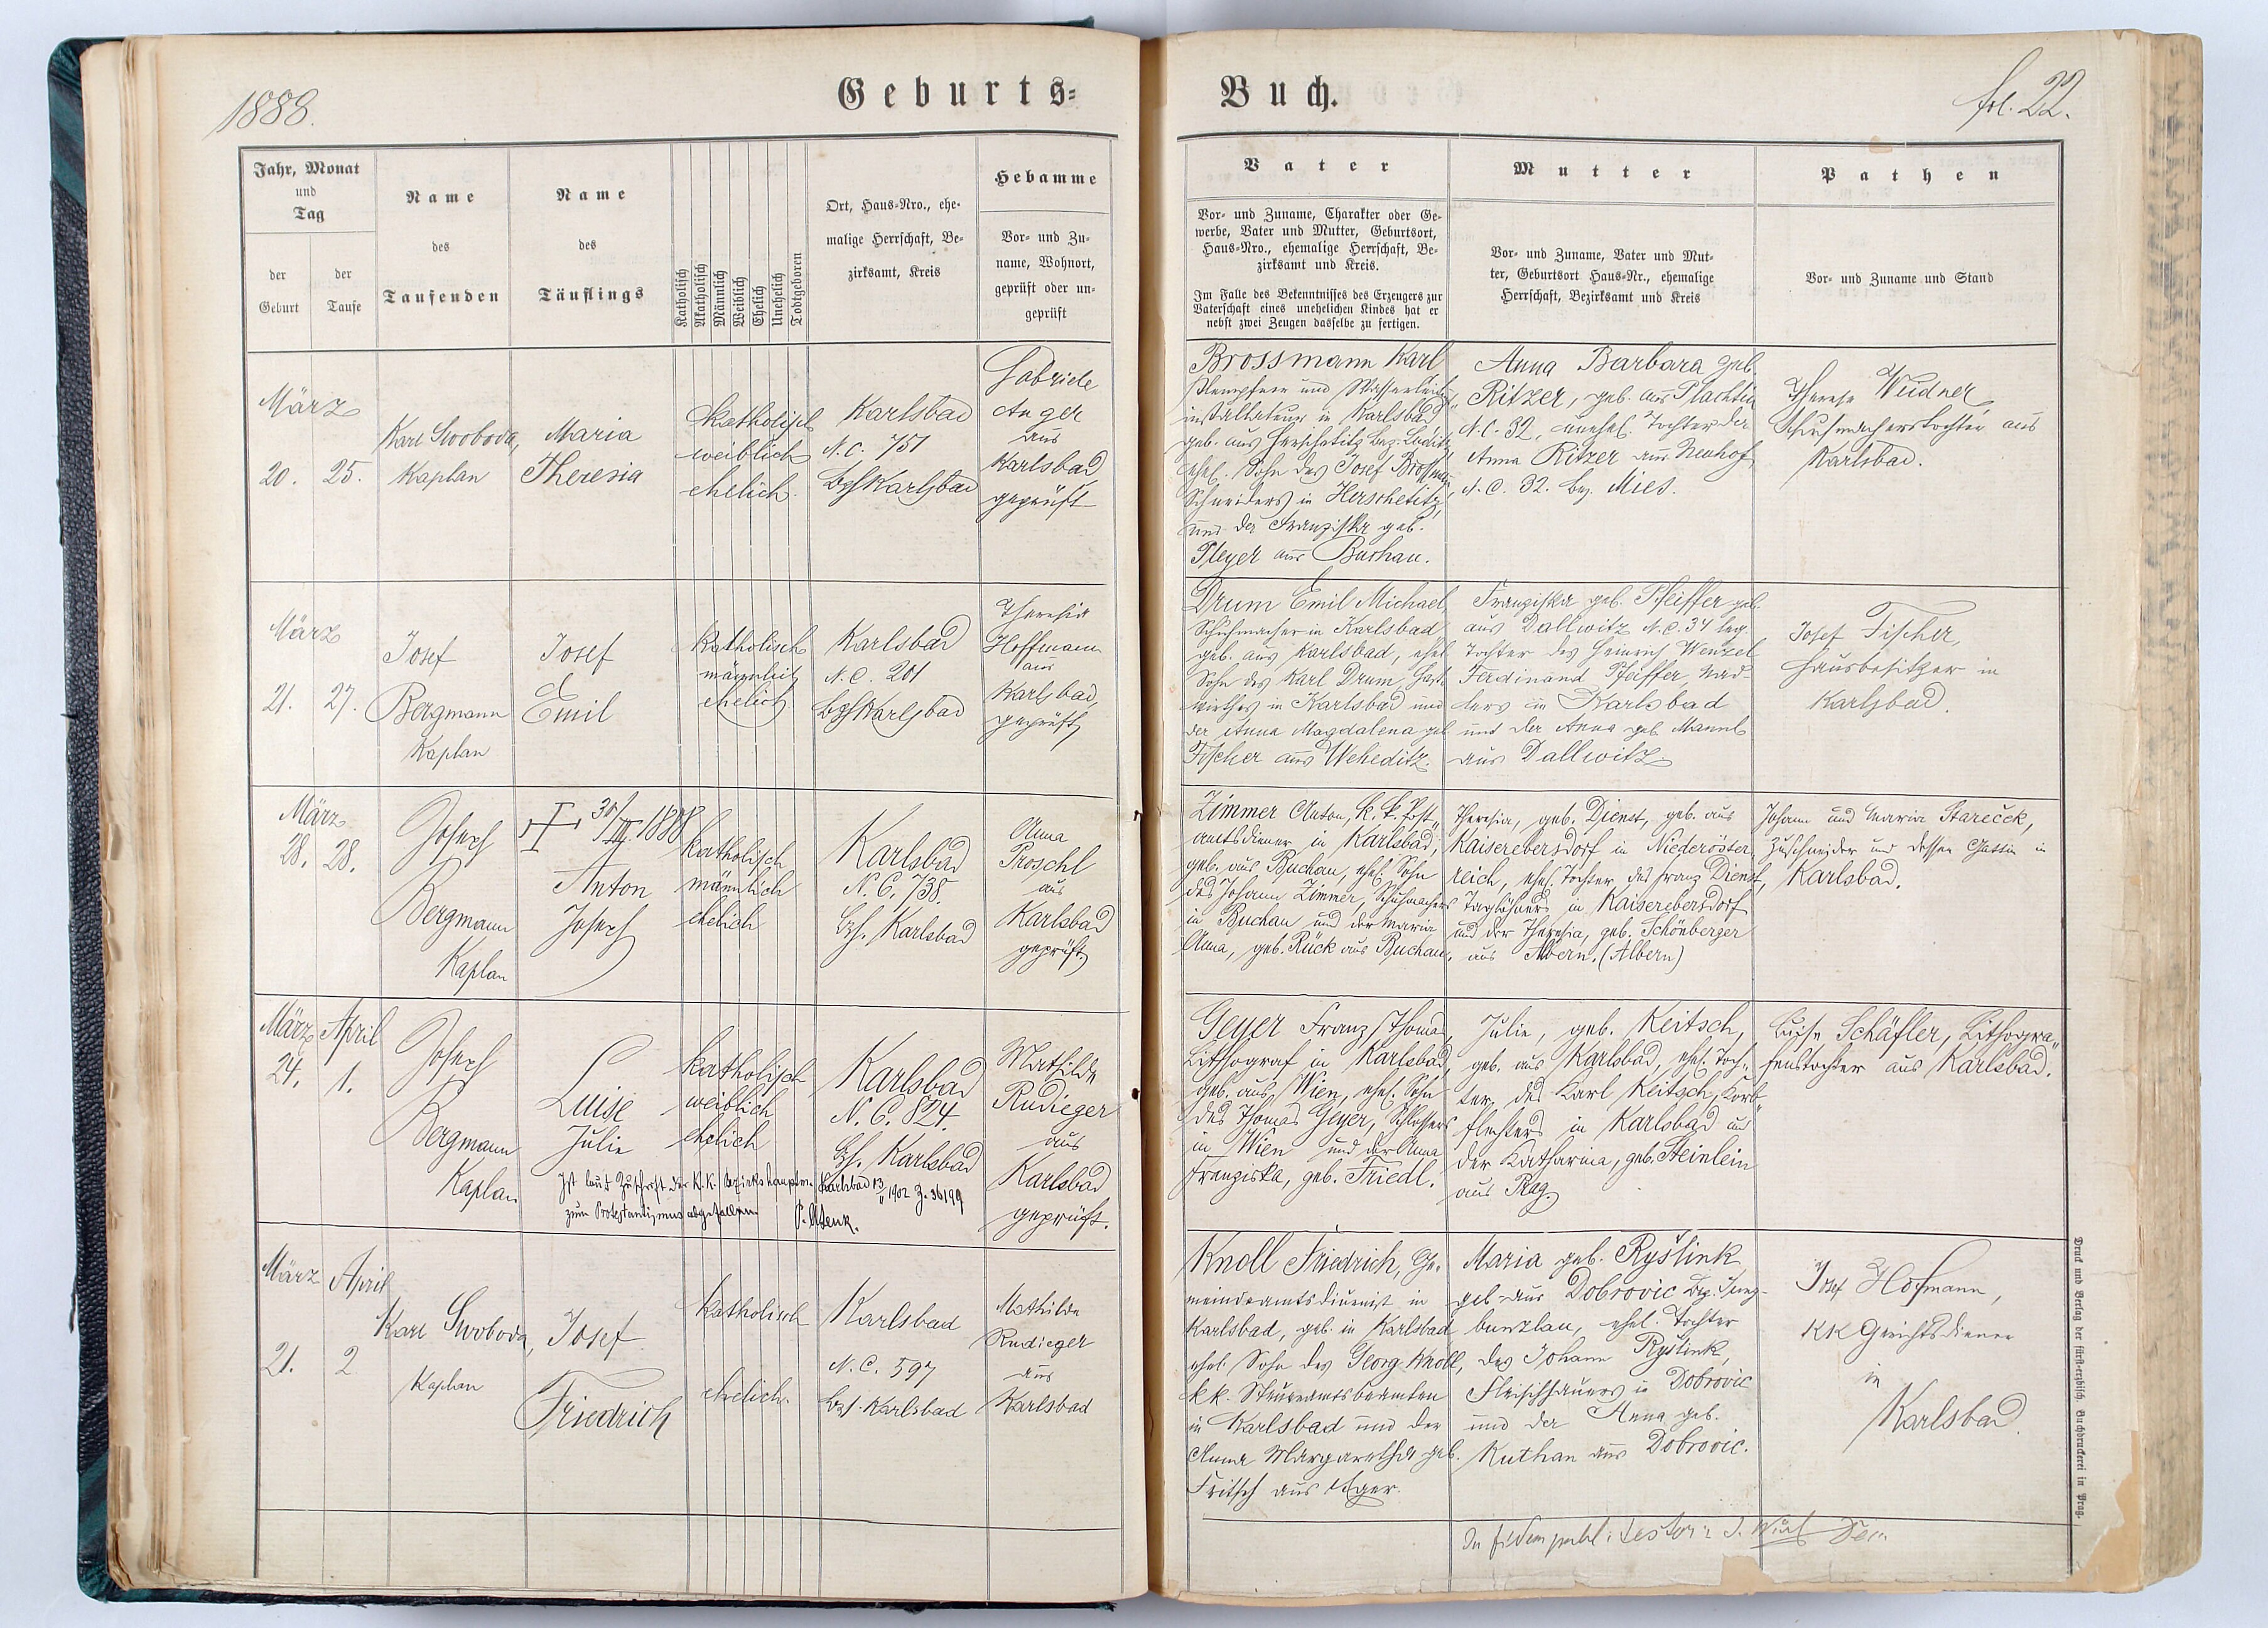 1888.
Geburts-
Buch.
fol. 22.
Jahr, Monat
und
Tag
der
Geburt
der
Taufe
Name
des
Taufenden
Name
des
Täuflings
Katholisch
Akatholisch
Männlich
Weiblich
Ehelich
Unehelich
Todtgeboren
Ort, Haus-Nro., ehe-
malige Herrschaft, Be-
zirksamt, Kreis
Hebamme
Vor- und Zu-
name, Wohnort,
geprüft oder un-
geprüft
Vater
Vor- und Zuname, Charakter oder Ge-
werbe, Vater und Mutter, Geburtsort,
Haus-Nro., ehemalige Herrschaft, Be-
zirksamt und Kreis.
Im Falle des Bekenntnisses des Erzeugers zur
Vaterschaft eines unehelichen Kindes hat er
nebst zwei Zeugen dasselbe zu fertigen.
Mutter
Vor- und Zuname, Vater und Mut-
ter, Geburtsort Haus-Nr., ehemalige
Herrschaft, Bezirksamt und Kreis
Pathen
Vor- und Zuname und Stand
März
20. 25.
Karl Swoboda,
Kaplan
Maria
Theresia
katholisch
weiblich
ehelich.
Karlsbad
N.C. 751
Bzh Karlsbad
Gabriele
Anger
aus
Karlsbad
geprüft
Brossmann Karl
Klempfner und Wasserleitungs
installateur in Karlsbad
geb. aus Herschetitz Bez. Luditz
ehel. Sohn des Josef Brossmann
Schneiders in Herschetitz,
und der Franziska geb.
Pleyer aus Buchau.
Anna Barbara geb.
Ritzer, geb. aus Plachtin
N.C. 32, unehel. Tochter der
Anna Ritzer aus Neuhof
N.C. 32. bz. Mies.
Therese Weidner
Schuhmacherstochter aus
Karlsbad.
März
21. 27.
Josef
Bergmann
Kaplan
Josef
Emil
katholisch
männlich
ehelich
Karlsbad
N.C. 201
Bzh Karlsbad
Theresia
Hoffmann
aus
Karlsbad,
geprüft
Drum Emil Michael
Schuhmacher in Karlsbad
geb. aus Karlsbad, ehel
Sohn des Karl Drum, Gast
wirthes in Karlsbad und
der Anna Magdalena geb
Fischer aus Weheditz.
Franziska geb. Pfeiffer geb.
aus Dallwitz N.C. 34 leg.
Tochter des Heinrich Wenzel
Ferdinand Pfeiffer, Nad-
lers in Karlsbad
und der Anna geb. Mannl
aus Dallwitz
Josef Fischer,
Hausbesitzer in
Karlsbad.
März
28. 28.
Joseph
Bergmann
Kaplan
30/III. 1888
Anton
Joseph
katholisch
männlich
ehelich
Karlsbad
N.C. 738.
Bzh. Karlsbad
Anna
Proschl
aus
Karlsbad
geprüft.
Zimmer Anton, k.k. Post-
amtsdiener in Karlsbad,
geb. aus Buchau, ehel. Sohn
des Johann Zimmer, Schuhmachers
in Buchau und der Maria
Anna, geb. Rück aus Buchau.
Theresia, geb. Dienst, geb. aus
Kaiserebersdorf in Niederöster-
reich, ehel. Tochter des Franz Dienst,
Taglöhners in Kaiserebersdorf
und der Theresia, geb. Schönberger
aus Albern. (Albern)
Johann und Maria Stareček,
Zuschneider und dessen Gattin in
Karlsbad.
März April
24. 1.
Joseph
Bergmann
Kaplan
Luise
Julie
katholisch
weiblich
ehelich
Karlsbad
N.C. 824.
Bzh. Karlsbad
Mathilde
Rudieger
aus
Karlsbad
geprüft.
Ist laut Zuschrift der k.k. Bezirkshauptm. Karlsbad 13/II 1902 Z. 36199
zum Protestantismus abgefallen.
Geyer Franz Thomas
Lithograf in Karlsbad,
geb. aus Wien, ehel. Sohn
des Thomas Geyer, Schlossers
in Wien und der Anna
Franziska, geb. Friedl.
Julie, geb. Keitsch,
geb. aus Karlsbad, ehel. Toch-
ter, des Karl Keitsch, Korb-
flechters in Karlsbad und
der Katharina, geb. Steinlein
aus Prag.
Luise Schäfler, Lithogra-
fenstochter aus Karlsbad.
März April
21. 2
Karl Swoboda,
Kaplan
Josef
Friedrich
katholisch
ehelich.
Karlsbad
N.C. 597
Bzh. Karlsbad
Mathilde
Rudieger
aus
Karlsbad
Knoll Friedrich, Ge-
meindeamtsdienist in
Karlsbad, geb. in Karlsbad
ehel. Sohn des Georg Knoll,
k.k. Steueramtsbeamten
in Karlsbad und der
Anna Margaretha geb.
Fritsch aus Eger.
Maria geb. Ryšlink
geb. aus Dobrovic Bez. Jung-
bunzlau, ehel. Tochter
des Johann Ryšlink,
Fleischhauers in Dobrovic
und der Anna geb.
Kuthan aus Dobrovic.
Josef Hofmann,
KK Gerichtsdiener
in
Karlsbad.
Druck und Verlag der fürst-erzbisch. Buchdruckerei in Prag.